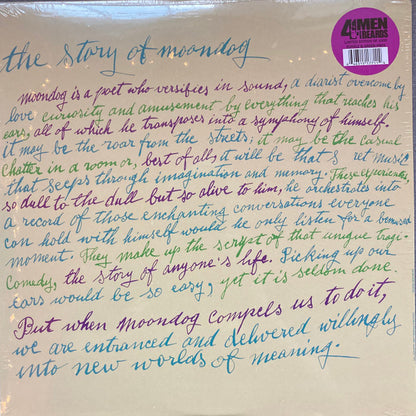 the story of moondog
4 MEN WITH BEARDS
Moondog is a poet who versifies in sound, a diarist overcome by
love curiosity and amusement by everything that reaches his
ears, all of which he transposes into a symphony of himself.
it may be the roar from the streets; it may be the casual
chatter in a room or, best of all, it will be that s ret music
that seeps through imagination and memory. These
so dull to the dull but so alive to him, he orchestrates into
a record of those enchanting conversations everyone
can hold with himself would he only listen for a bemused
moment. They make up the script of that unique tragi-
comedy, the story of anyone's life. Picking up our
ears would be so easy, yet it is seldom done.
But when Moondog compels us to do it,
we are entranced and delivered willingly
into new worlds of meaning.